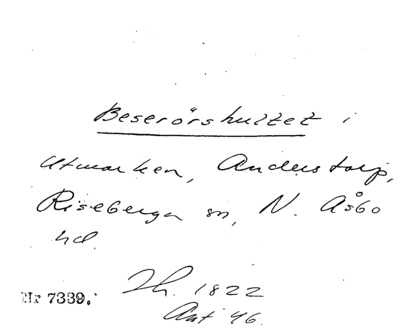 Beserörshultet i
Utmarken, Anderstorp,
Riseberga sn, N. Åsbo
hd.
Nr 7339. Th. 1822
Aut 46.